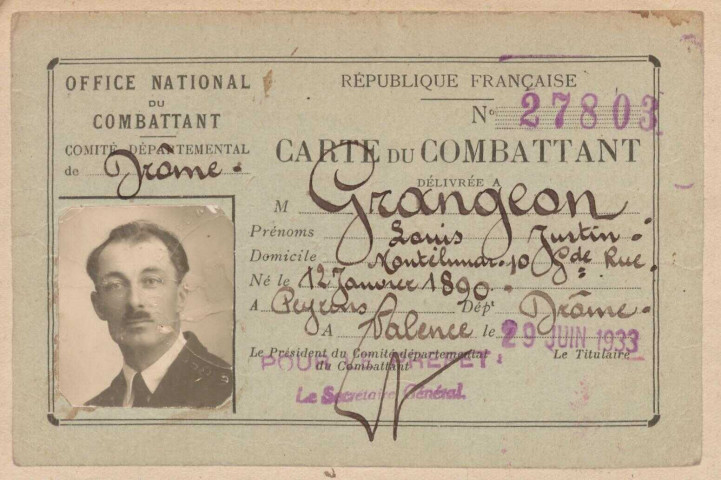 OFFICE NATIONAL
DU
COMBATTANT
COMITÉ DÉPARTEMENTAL
de Drôme.
RÉPUBLIQUE FRANÇAISE
N° 27803
CARTE DU COMBATTANT
DÉLIVRÉE A
M Grangeon
Prénoms Louis Justin
Domicile Montélimar 10 Gde Rue.
Né le 12 Janvier 1890
A Peyrins Dépt Drôme
A Valence le 29 JUIN 1933
Le Président du Comité départemental
du Combattant
Le Titulaire
POUR LE PREFET,
Le Secrétaire Général.